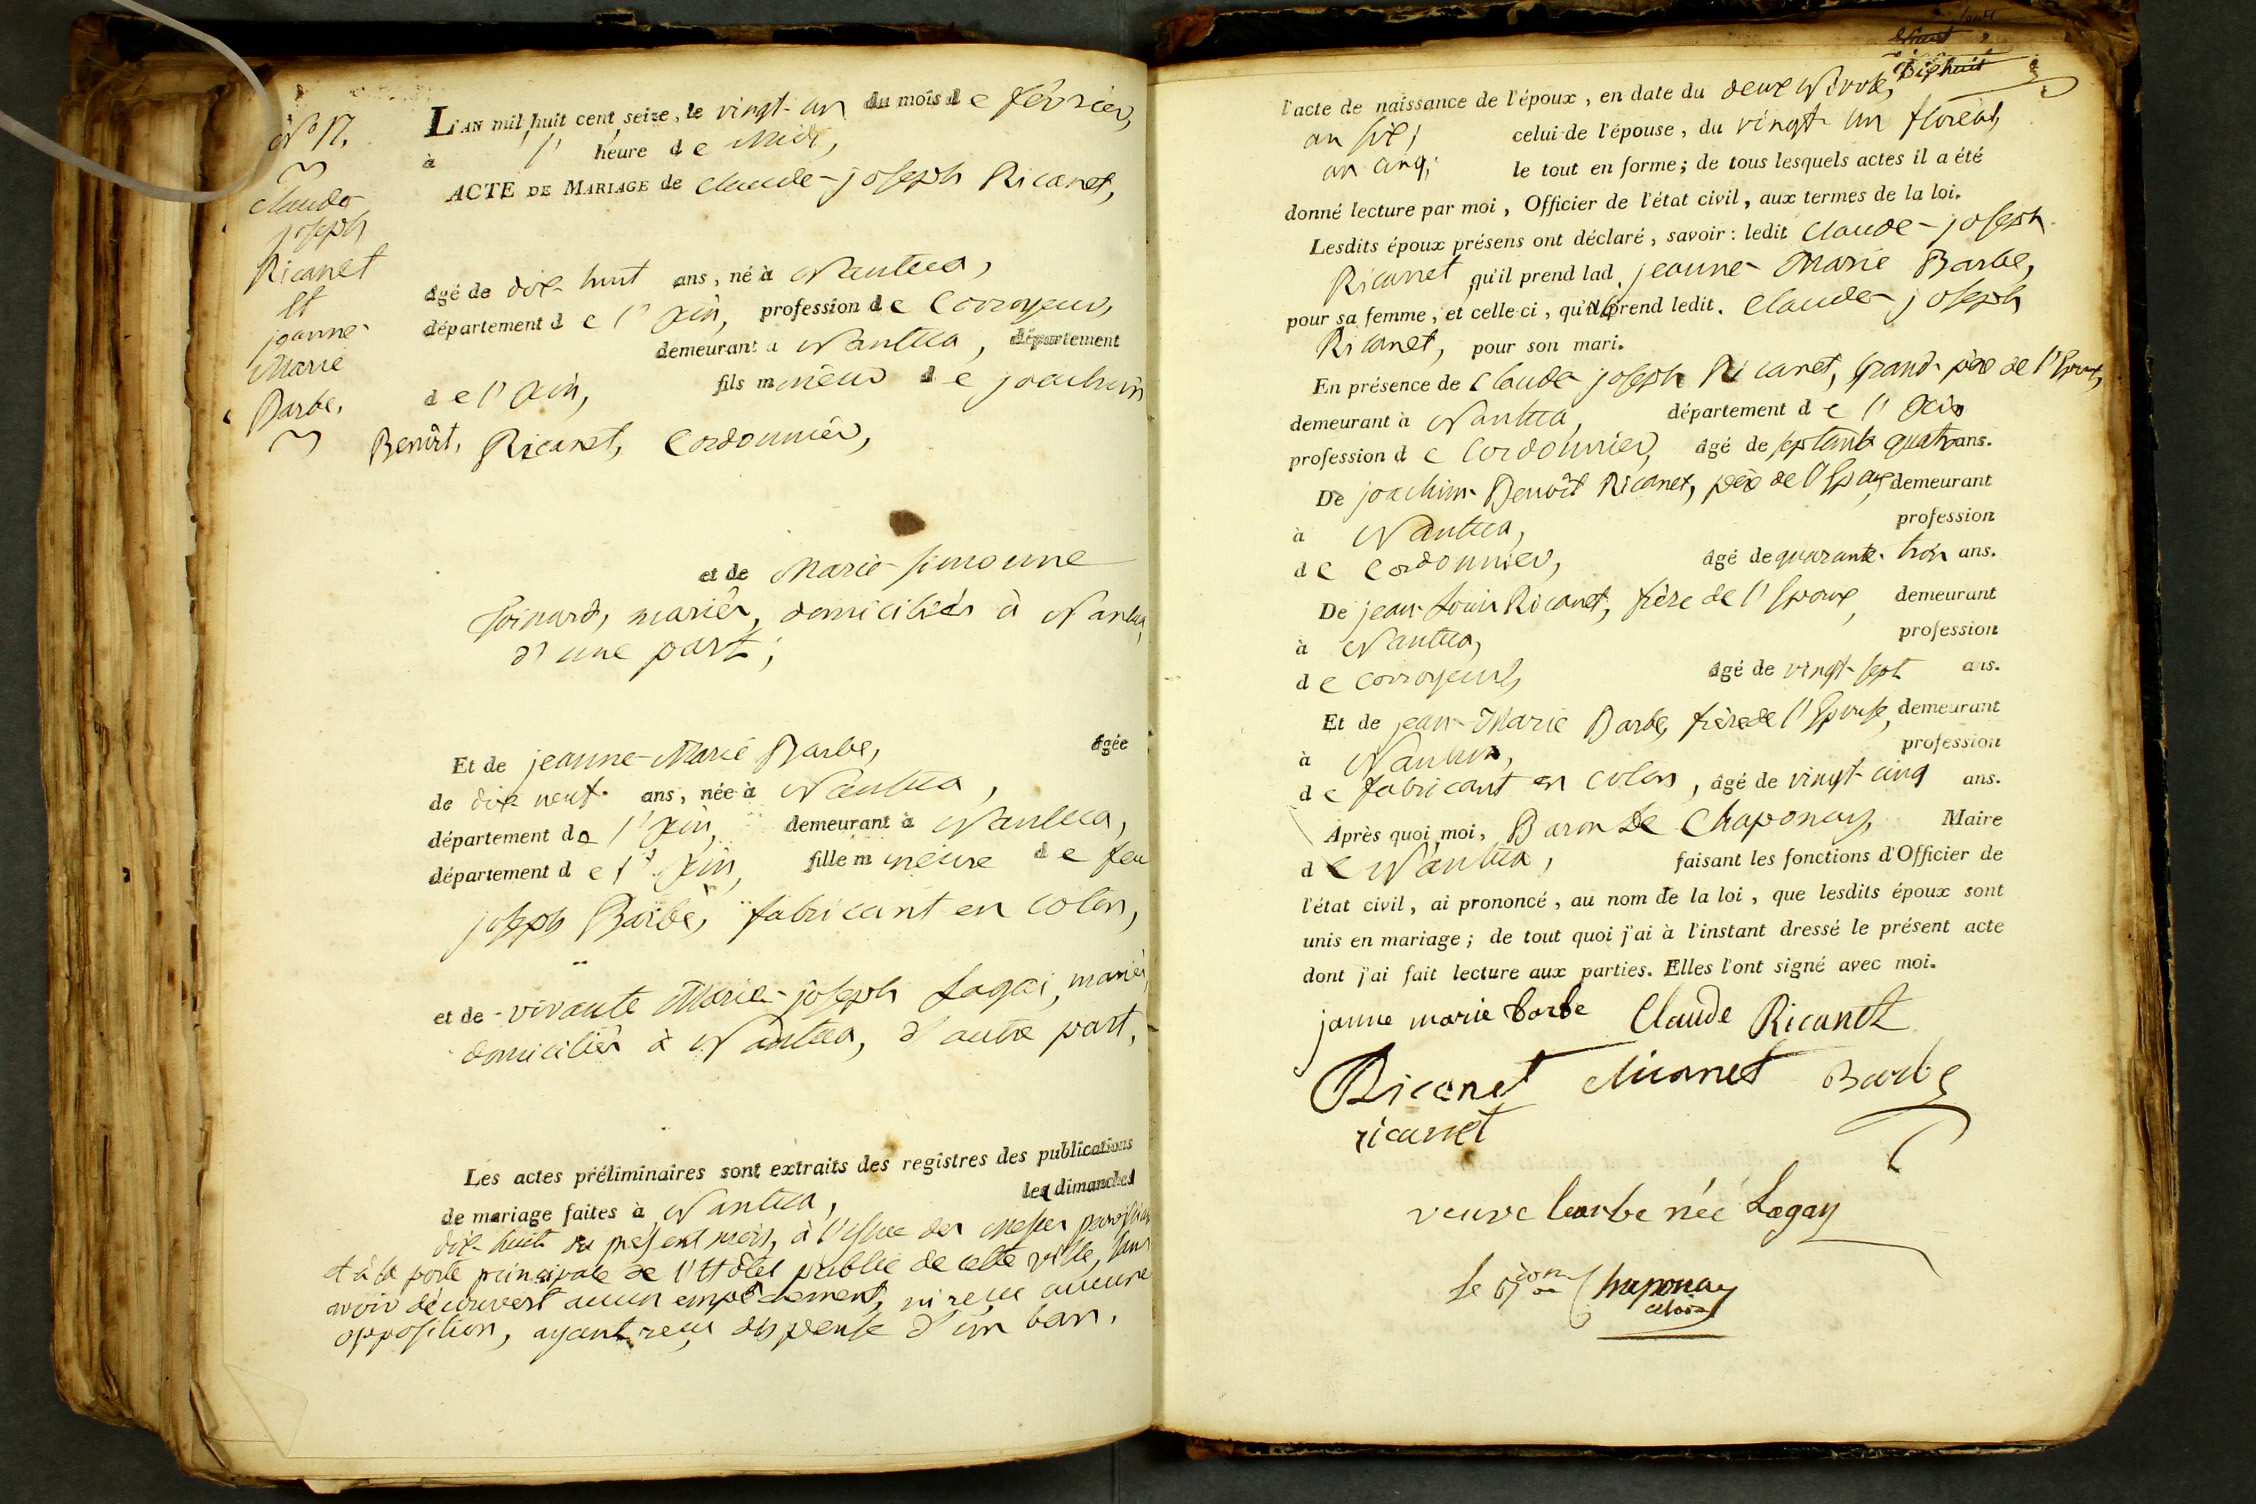 N° 17.
Claude
joseph
Ricanet
Et
jeanne
Marie
Barbe.
L'AN mil huit cent seize, le vingt-un du mois de février,
à l' heure de Midi,
ACTE DE MARIAGE de Claude-joseph Ricanet,
âgé de dix-huit ans, né à Nantua,
département de l'Ain, profession de Corroyeur,
demeurant à Nantua, département
de l'Ain, fils mineur de joachim
Benoît, Ricanet, Cordonnier,
et de Marie-simonne
Goinard, mariés, domiciliés à Nantua,
d'une part;
Et de jeanne-Marie Barbe, âgée
de dix neuf ans, née à Nantua,
département de l'Ain, demeurant à Nantua,
département de l'Ain, fille mineure de feu
joseph Barbe, fabricant en coton,
et de vivante Marie-joseph Lagai, mariés,
domiciliés à Nantua, d'autre part,
Les actes préliminaires sont extraits des registres des publications
de mariage faites à Nantua, les dimanches
dix-huit du présent mois, à l'issue des messes paroissiales
et à la porte principale de l'Hôtel public de cette ville, sans
avoir découvert aucun empêchement, ni reçu aucune
opposition, ayant reçu dispense d'un ban.
Dix huit
l'acte de naissance de l'époux, en date du deux Nivose,
an six; celui de l'épouse, du vingt-un floréal,
an cinq; le tout en forme; de tous lesquels actes il a été
donné lecture par moi, Officier de l'état civil, aux termes de la loi.
Lesdits époux présens ont déclaré, savoir: ledit Claude-joseph
Ricanet qu'il prend lad. jeanne-Marie Barbe,
pour sa femme, et celle ci, qu'elle prend ledit. Claude-joseph
Ricanet, pour son mari.
En présence de Claude joseph Ricanet, grand-père de l'Epoux,
demeurant à Nantua, département de l'Ain
profession de Cordonnier, âgé de septante quatre ans.
De joachim Benoît Ricanet, père de l'Epoux, demeurant
à Nantua, profession
de Cordonnier, âgé de quarante-trois ans.
De jean-Louis Ricanet, frère de l'Epoux, demeurant
à Nantua, profession
de corroyeur, âgé de vingt-sept ans.
Et de jean-Marie Barbe, frère de l'Epouse, demeurant
à Nantua, profession
de fabricant en coton, âgé de vingt-cinq ans.
Après quoi, moi, Baron de Chaponay, Maire
de Nantua, faisant les fonctions d'Officier de
l'état civil, ai prononcé, au nom de la loi, que lesdits époux sont
unis en mariage; de tout quoi j'ai à l'instant dressé le présent acte
dont j'ai fait lecture aux parties. Elles l'ont signé avec moi.
janne marie barbe Claude Ricanet
Ricanet Ricanet Barbe
ricanet
veuve barbe née Lagay
Le Bon de Chaponay